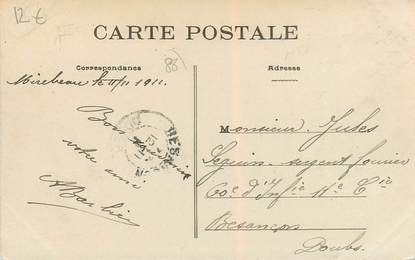 12 €
CARTE POSTALE
Correspondance
Adresse
88
Mirebeau le 11/11 1911.
Bon
votre ami
A Barbier
Monsieur Jules
Seguin sergent fourrier
60e d'Infie 11e Cie
Besançon
Doubs.
BES